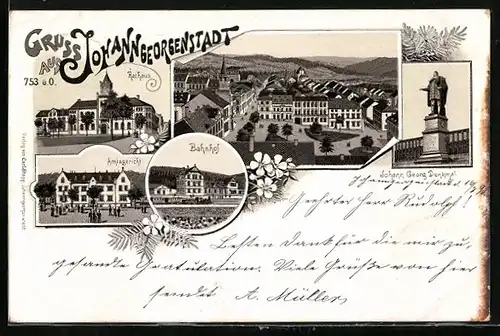 GRUSS AUS JOHANNGEORGENSTADT
753 ü. O.
Rathaus
Amtsgericht
Bahnhof
Johann Georg Denkmal
Johanngeorgenstadt
Geehrter Herr Rudolph!
Besten Dank für die mir zu-
gesandte Gratulation. Viele Grüße von hier
sendet A. Müller